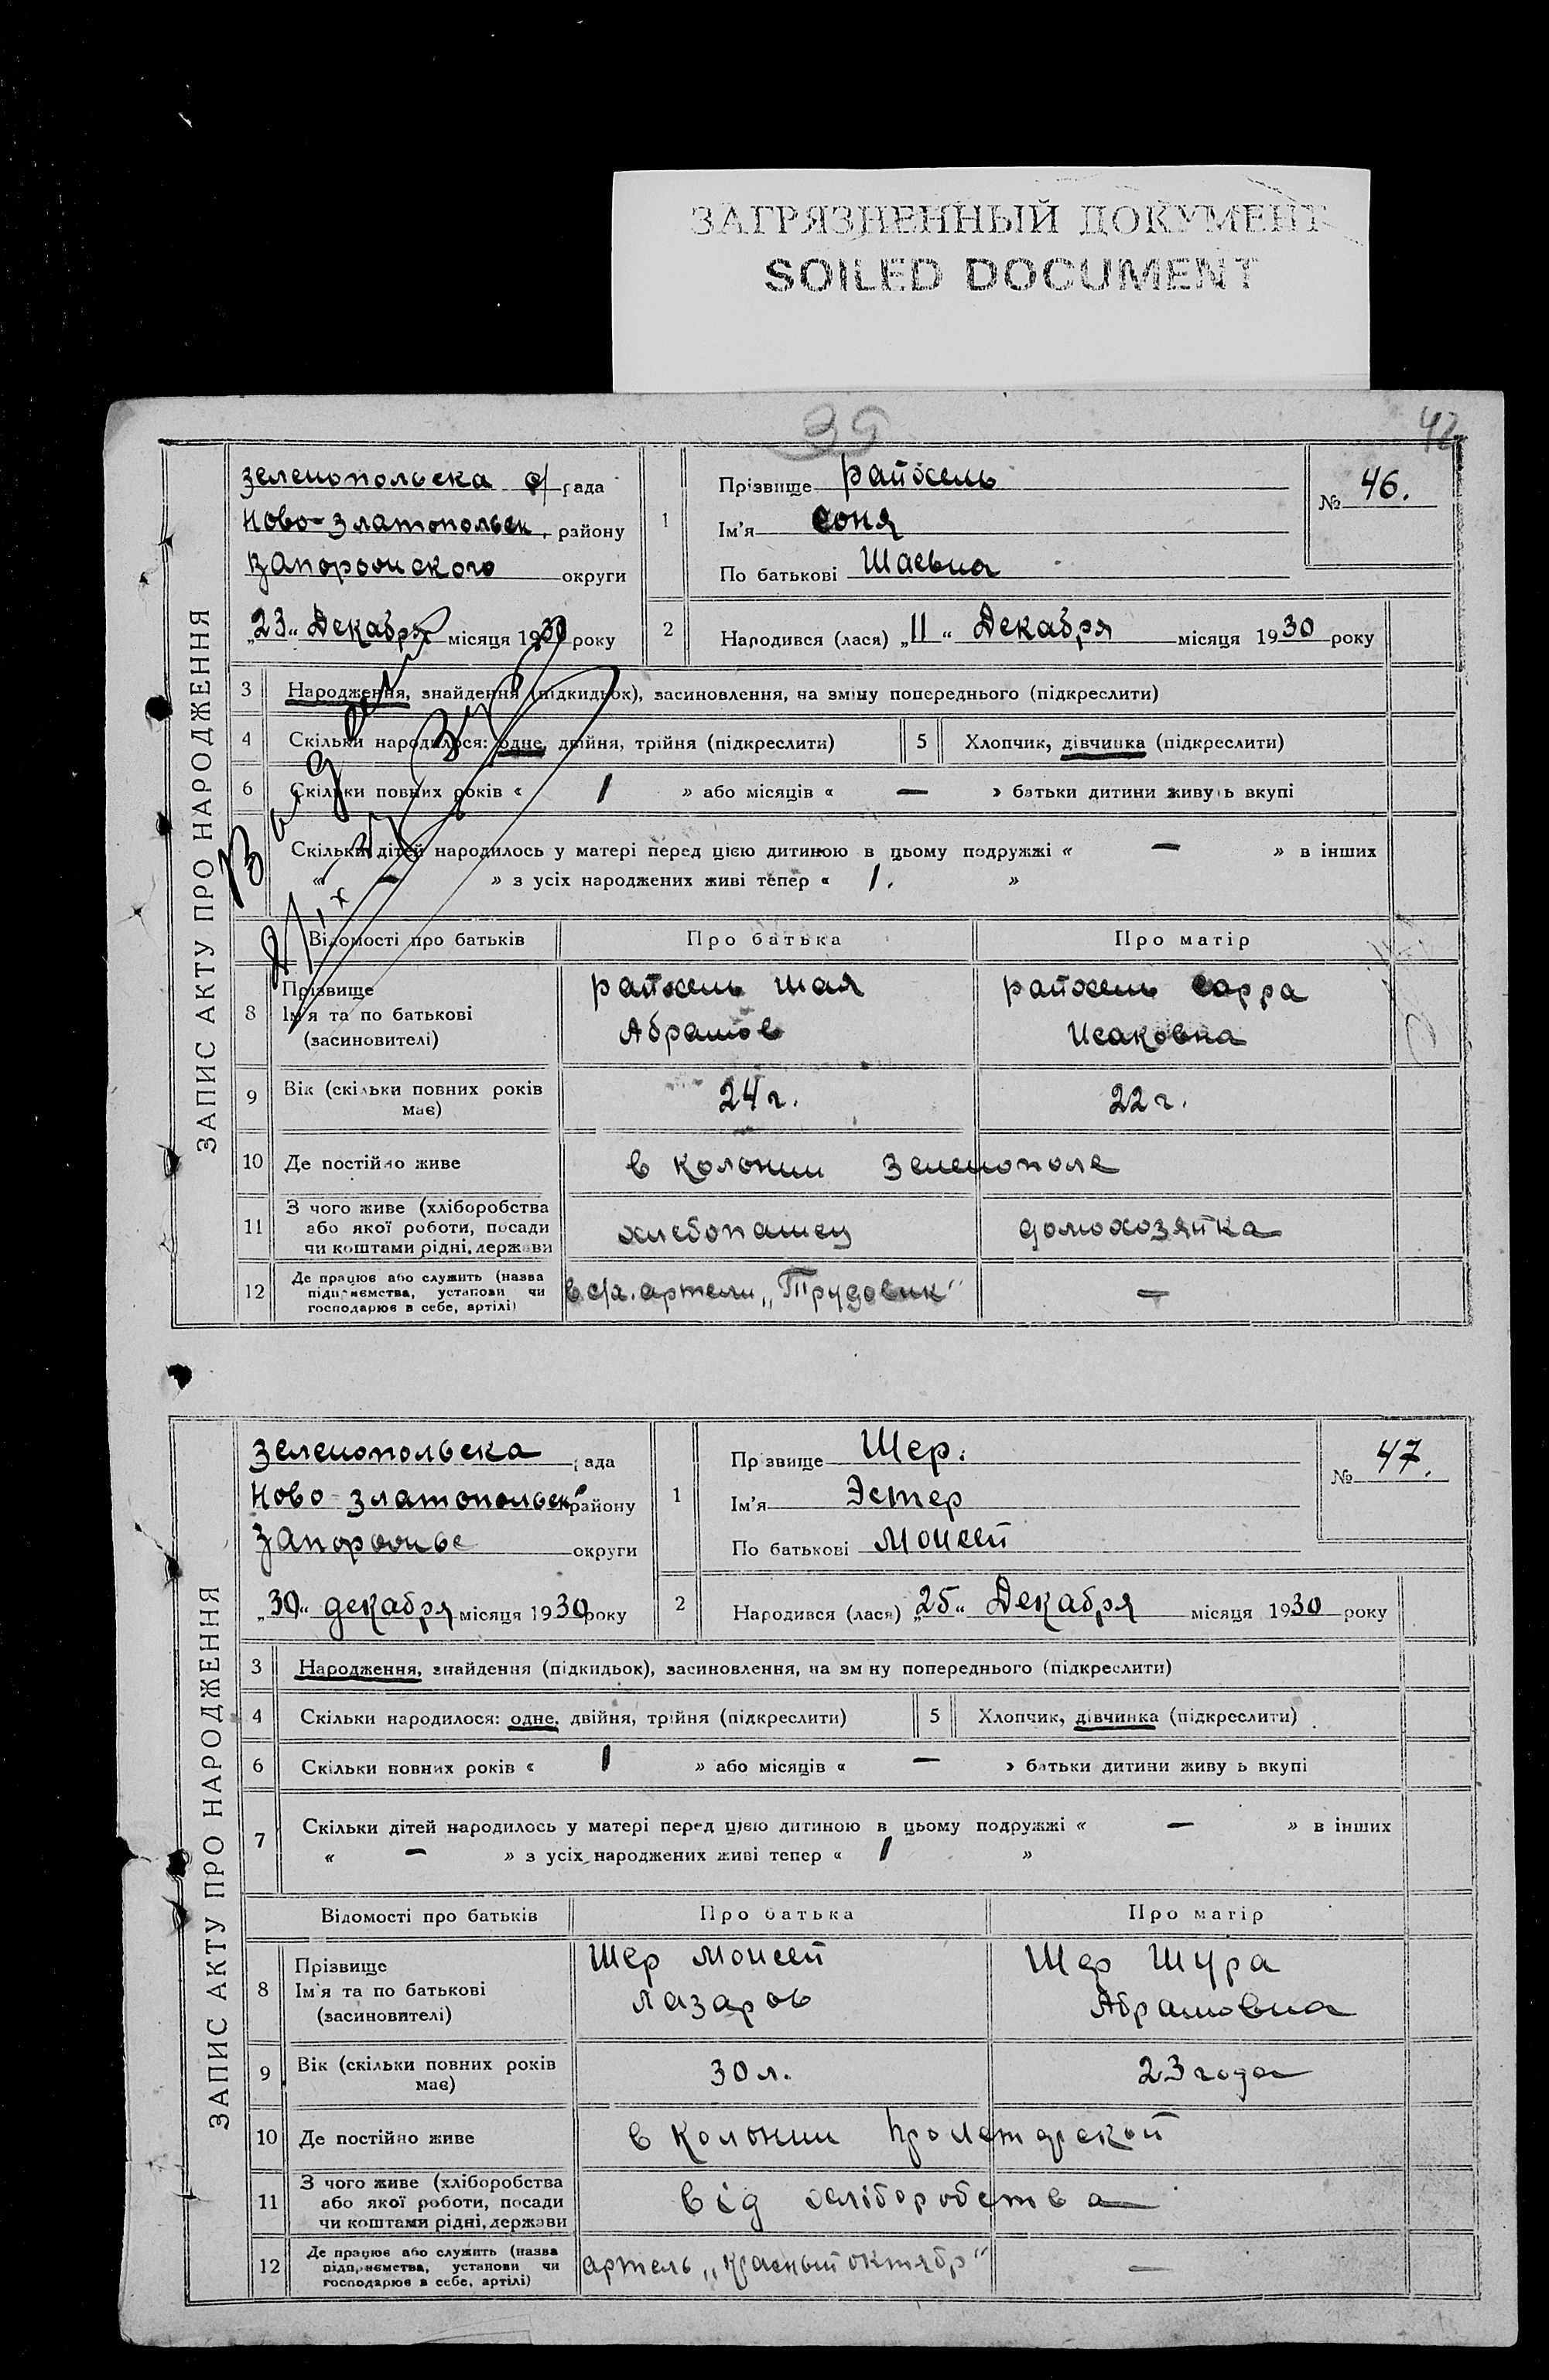 ЗАГРЯЗНЕННЫЙ ДОКУМЕНТ
SOILED DOCUMENT
39
42
ЗАПИС АКТУ ПРО НАРОДЖЕННЯ
Зеленопольска с/рада
Ново-Златопольск. району
Запорожского округи
„23“ Декабря місяця 1930 року
1
Прізвище Райхель
Ім'я Соня
По батькові Шаевна
№ 46.
2
Народився (лася) „11“ Декабря місяця 1930 року
3 Народження, знайдення (підкидьок), засиновлення, на зміну попереднього (підкреслити)
4 Скільки народилося: одне, двійня, трійня (підкреслити)
5 Хлопчик, дівчинка (підкреслити)
6 Скільки повних років « 1 » або місяців « — » батьки дитини живуть вкупі
Скільки дітей народилось у матері перед цією дитиною в цьому подружжі « — » в інших
« — » з усіх народжених живі тепер « 1. »
Відомості про батьків Про батька Про матір
8 Прізвище
Ім'я та по батькові
(засиновителі)
Райхель Шая
Абрамов
Райхель Сарра
Исаковна
9 Вік (скільки повних років
має)
24 г. 22 г.
10 Де постійно живе в колонии Зеленополе
11 З чого живе (хліборобства
або якої роботи, посади
чи коштами рідні, держави
хлебопашец домохозяйка
12 Де працює або служить (назва
підприємства, установи чи
господарює в себе, артілі)
в с/х. артели „Трудовик“ —
ЗАПИС АКТУ ПРО НАРОДЖЕННЯ
Зеленопольска рада
Ново-Златопольск району
Запорожье округи
„30“ декабря місяця 1930 року
1
Прізвище Шер.
Ім'я Эстер
По батькові Моисей
№ 47.
2
Народився (лася) „25“ Декабря місяця 1930 року
3 Народження, знайдення (підкидьок), засиновлення, на зміну попереднього (підкреслити)
4 Скільки народилося: одне, двійня, трійня (підкреслити)
5 Хлопчик, дівчинка (підкреслити)
6 Скільки повних років « 1 » або місяців « — » батьки дитини живуть вкупі
7 Скільки дітей народилось у матері перед цією дитиною в цьому подружжі « — » в інших
« — » з усіх народжених живі тепер « 1 »
Відомості про батьків Про батька Про матір
8 Прізвище
Ім'я та по батькові
(засиновителі)
Шер Моисей
Лазаров
Шер Шура
Абрамовна
9 Вік (скільки повних років
має)
30 л. 23 года
10 Де постійно живе в колонии Пролетарской
11 З чого живе (хліборобства
або якої роботи, посади
чи коштами рідні, держави
від хліборобства
12 Де працює або служить (назва
підприємства, установи чи
господарює в себе, артілі)
артель „Красный октябр“ —